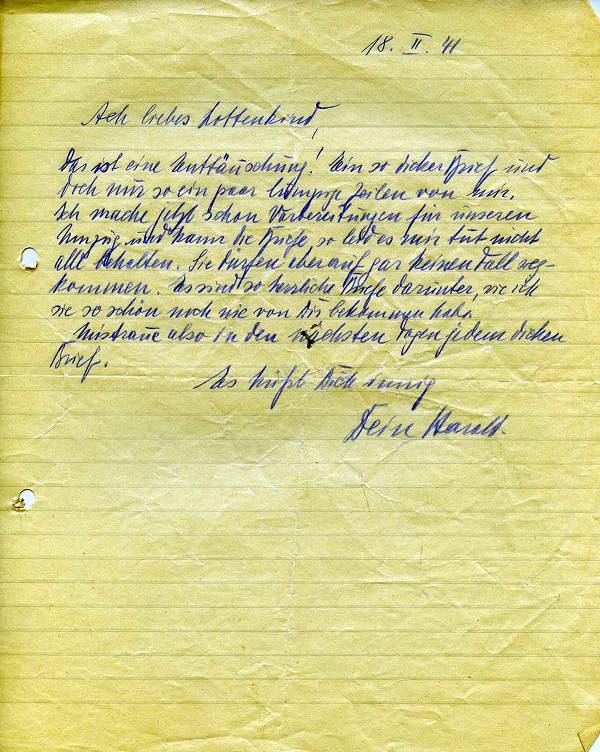 18. II. 41
Ach liebes Lottenkind,
Das ist eine Enttäuschung! Ein so dicker Brief und
doch nur so ein paar lumpige Zeilen von mir.
Ich mache jetzt schon Vorbereitungen für unseren
Umzug und kann die Briefe, so leid es mir tut nicht
alle behalten. Sie dürfen aber auf gar keinen Fall weg-
kommen. Es sind so herzliche Briefe darunter, wie ich
sie so schön noch nie von Dir bekommen habe.
Mistraue also in den nächsten Tagen jedem dicken
Brief.
Es küßt Dich innig
Dein Harald.